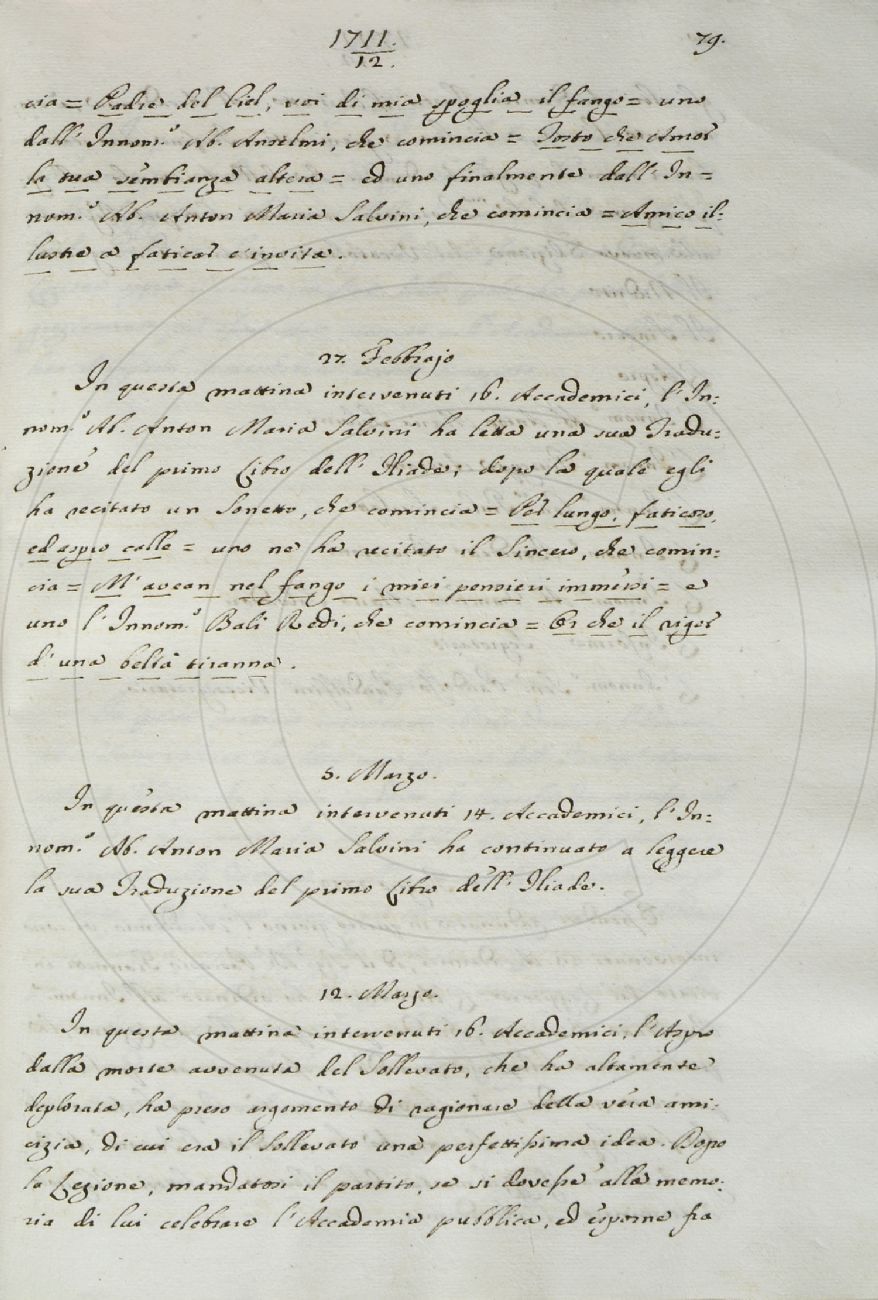 1711. 79.
12.
cia = Padre del Ciel, voi di mia spoglia il fango = uno
dall' Innom.° Ab. Anselmi, che comincia = Tosto che Amor
la sua sembianza altera = ed uno finalmente dall' In =
nom.° Ab. Anton Maria Salvini, che comincia = Amico il:
lustre a faticar c'invita.
27. Febbrajo
In questa mattina intervenuti 16. Accademici, l' In:
nom.° Ab. Anton Maria Salvini ha letta una sua Tradu:
zione del primo Libro dell' Iliade; dopo la quale egli
ha recitato un Sonetto, che comincia = Pel lungo, faticoso,
ed aspro calle = uno ne ha recitato il Sincero, che comin:
cia = M' avean nel fango i miei pensieri immersi = e
uno l' Innom.° Balì Redi, che comincia = Or che il rigor
d' una beltà tiranna.
5. Marzo.
In questa mattina intervenuti 14. Accademici, l' In:
nom.° Ab. Anton Maria Salvini ha continuato a leggere
la sua Traduzione del primo Libro dell' Iliade.
12. Marzo.
In questa mattina intervenuti 16. Accademici, l' Aspro
dalla morte avvenuta del Sollevato, che ha altamente
deplorata, ha preso argomento di ragionare della vera ami:
cizia, di cui era il Sollevato una perfettissima idea. Dopo
la Lezione, mandatosi il partito, se si dovesse alla memo:
ria di lui celebrare l' Accademia pubblica, ed esporne fra